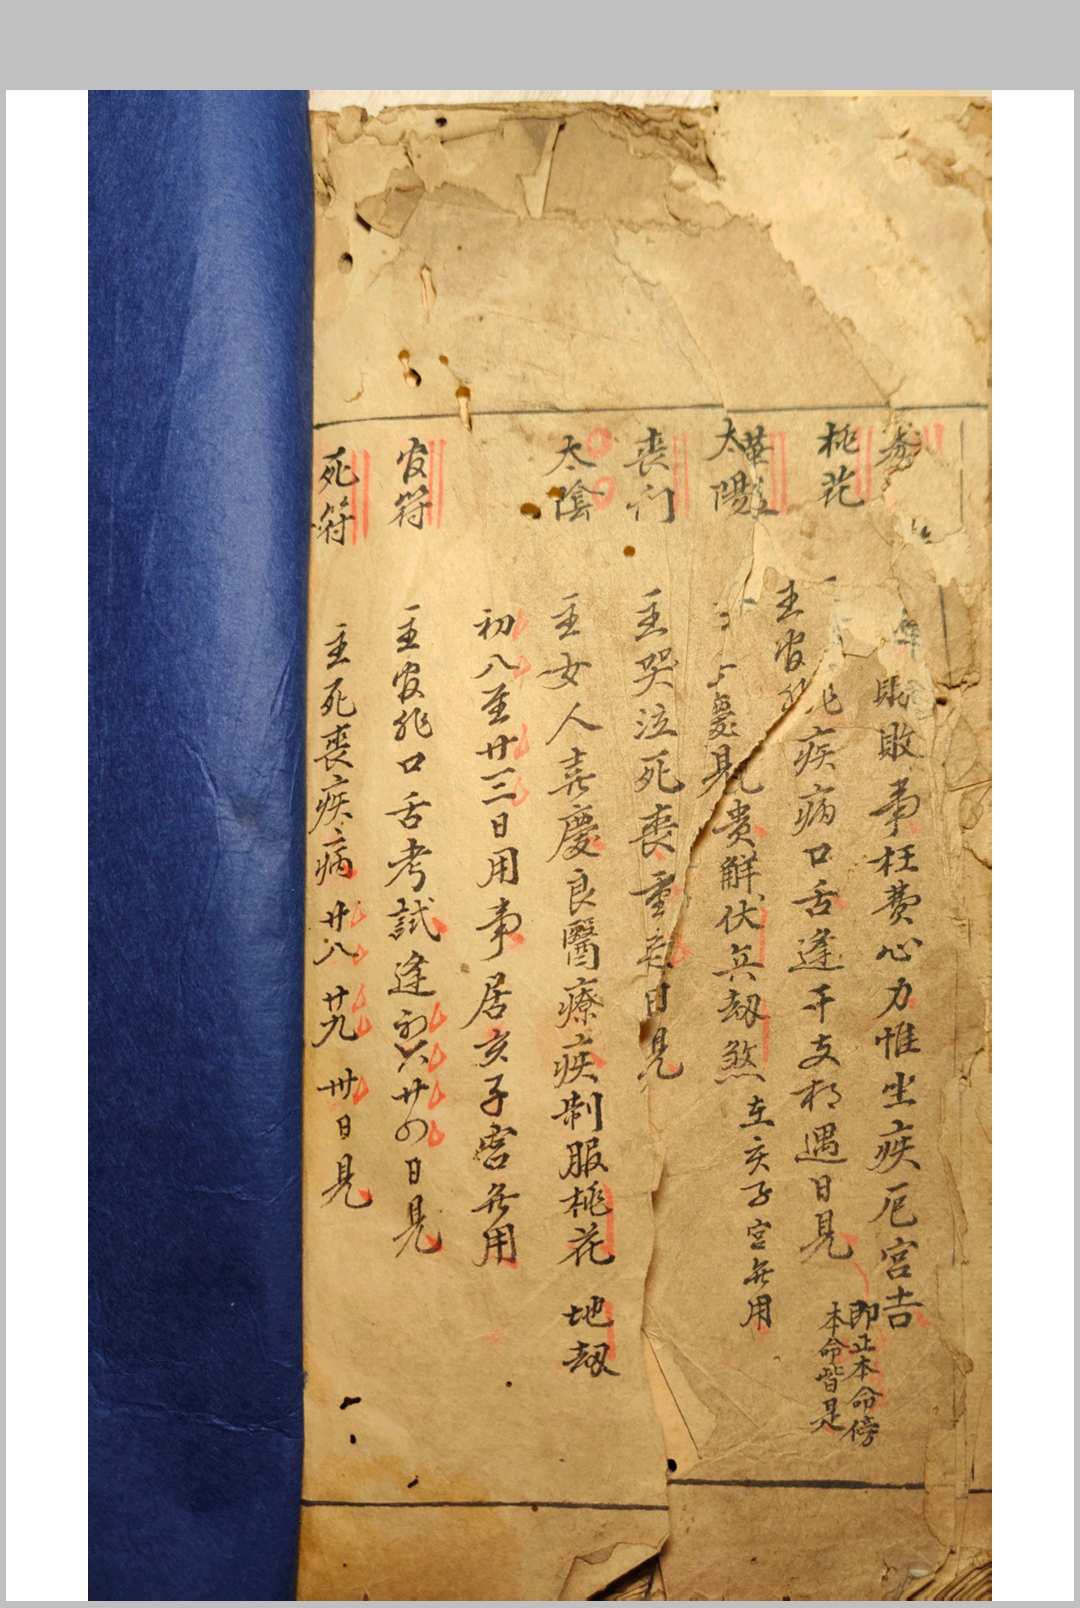 年 敗事枉費心力惟坐疾厄宮吉
桃花
主官非 疾病口舌逢干支相遇日見
即正本命傍
本命皆是
太陽 華蓋
慶見貴解伏兵劫煞在亥子宮無用
喪門 主哭泣死喪重 日見
太陰 主女人喜慶良醫療疾制服桃花 地劫
初八至廿三日用事居亥子宮無用
官符 主官非口舌考試逢初 廿 日見
死符 主死喪疾病廿八 廿九 卅日見